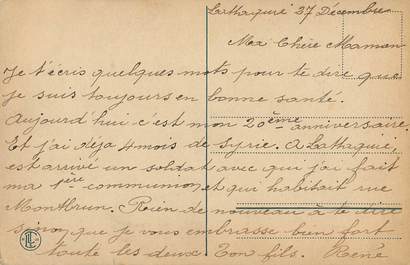 Lattaquié 27 Décembre
Ma Chère Maman
Je t'écris quelques mots pour te dire que
je suis toujours en bonne santé.
Aujourd'hui c'est mon 20ème anniversaire.
Et j'ai déja 4 mois de Syrie. A Lattaquie,
est arrivé un soldat avec qui j'ai fait
ma 1ère communion, et qui habitait rue
Montbrun. Rien de nouveau à te dire
sinon que je vous embrasse bien fort
toute les deux Ton fils. René